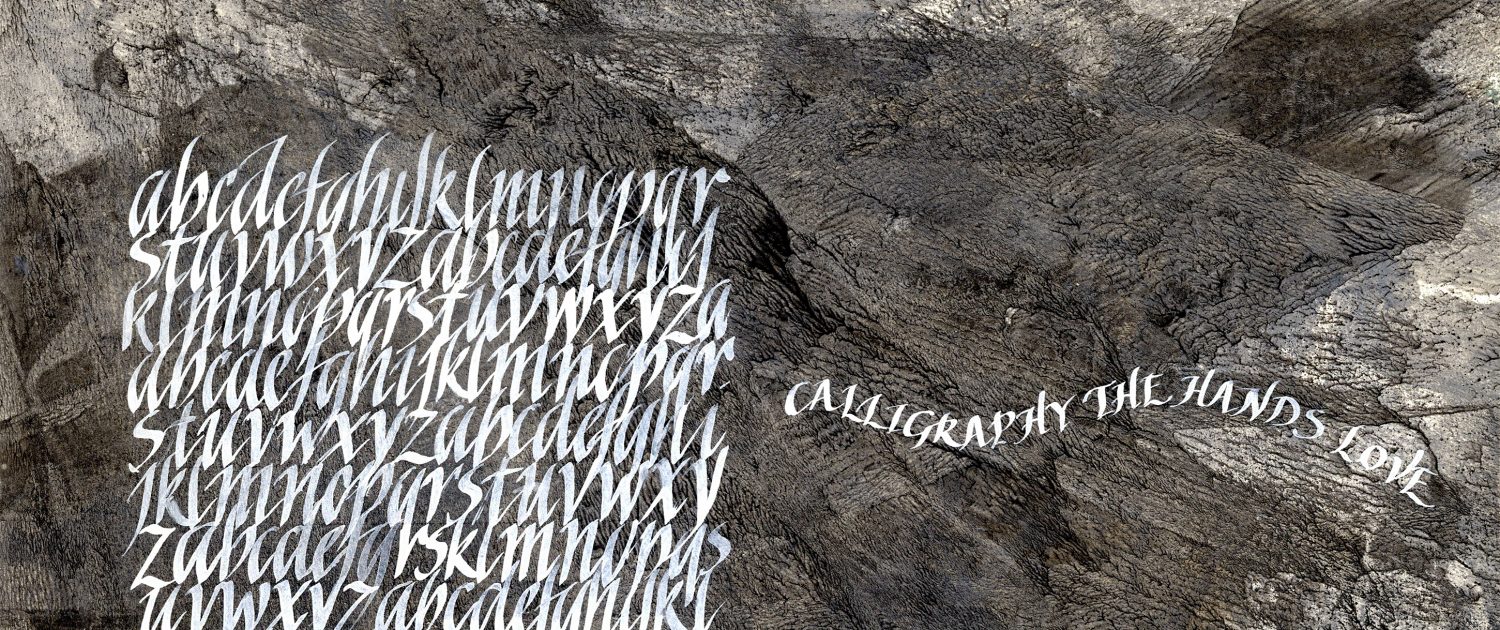 abcdefghijklmnopqr
stuvwxyzabcdefghij
klmnopqrstuvwxyza
abcdefghijklmnopqr
stuvwxyzabcdefghi
jklmnopqrstuvwxy
zabcdefqrsklmnopqs
uvwxyzabcdefghijkl
CALLIGRAPHY THE HANDS LOVE